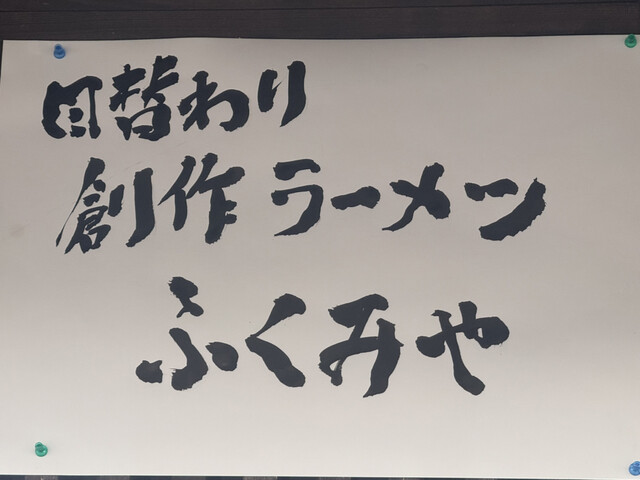 日替わり
創作ラーメン
ふくみや